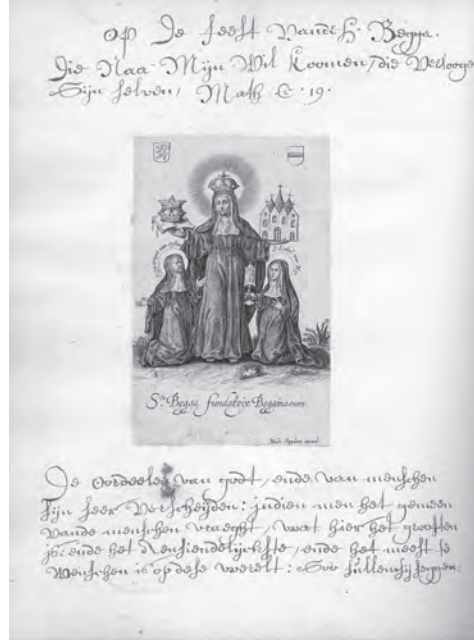 op De feest Vande H. Begga.
Die Naa Mijn Wil Koomen, die Verlooge
Sijn selven, Math C. 19.
S.ta Begga fundatrix Begginarum.
De oordeelen van godt, ende van menschen
sijn seer Verscheijden: indien men het gemeen
vande menschen vraeght, wat hier het grootsten
is: ende het Aensiendelijckste, ende het meest te
Wenschen is op dese werelt: Soo sullen sij seggen: